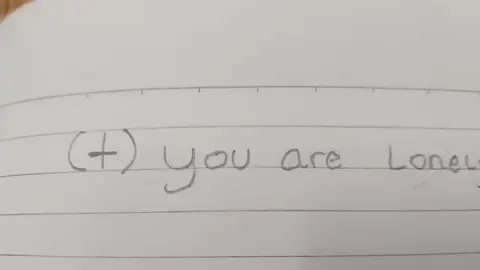 (+) you are Lonely